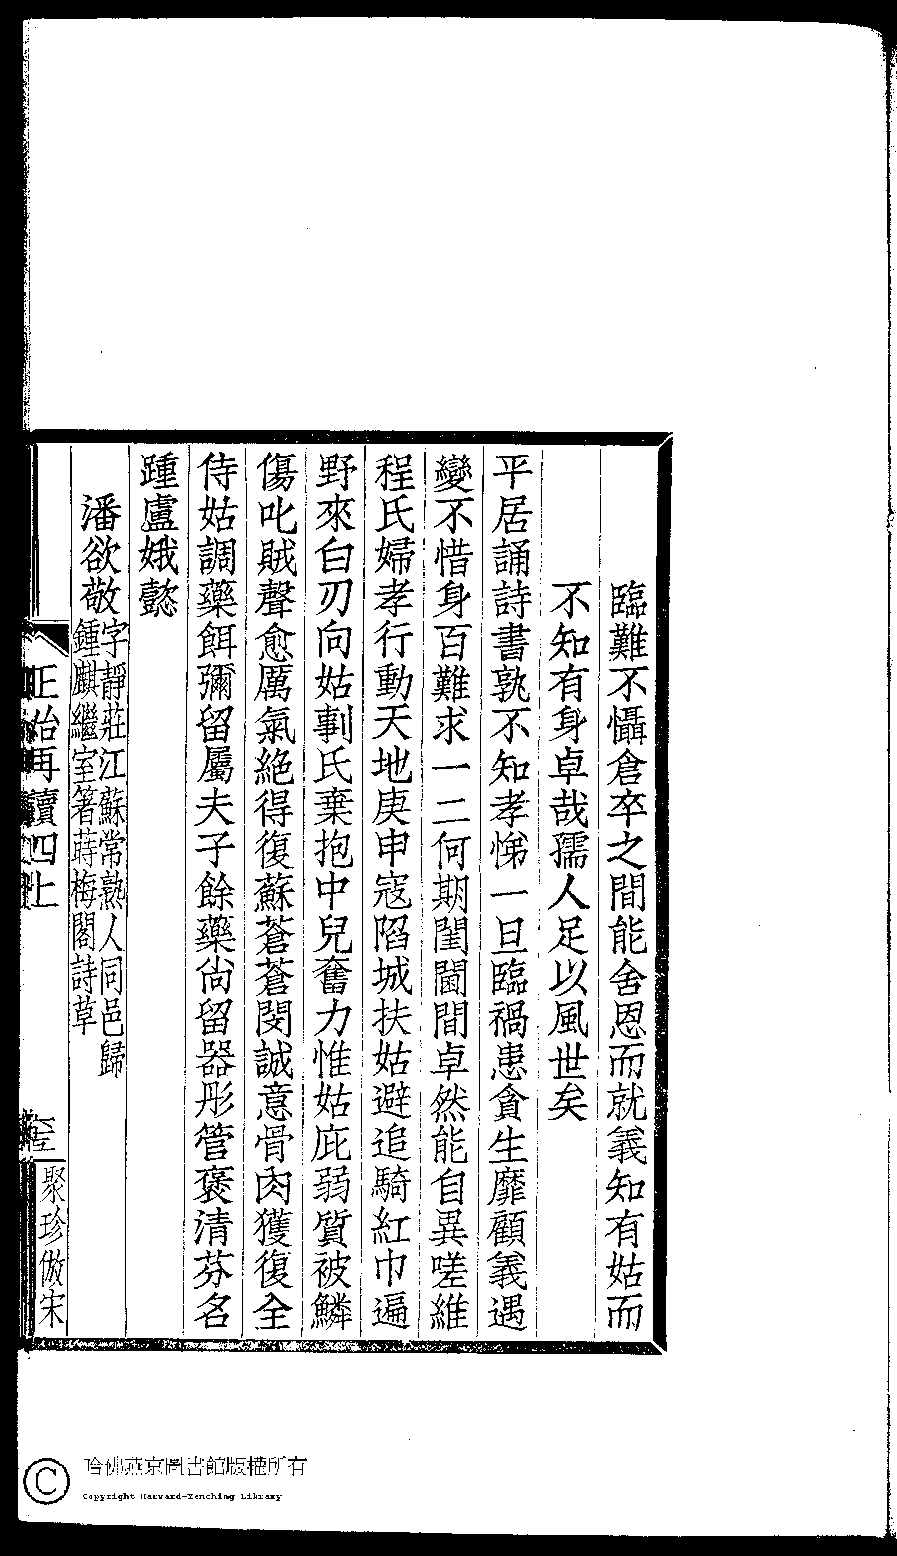 臨難不懾倉卒之間能舍恩而就義知有姑而
不知有身卓哉孺人足以風世矣
平居誦詩書孰不知孝悌一旦臨禍患貪生靡顧義遇
變不惜身百難求一二何期閨閫間卓然能自異嗟維
程氏婦孝行動天地庚申寇陷城扶姑避追騎紅巾遍
野來白刃向姑剚氏棄抱中兒奮力惟姑庇弱質被鱗
傷叱賊聲愈厲氣絕得復蘇蒼蒼閔誠意骨肉獲復全
侍姑調藥餌彌留屬夫子餘藥尙留器彤管褒清芬名
踵盧娥懿
潘欲敬
字靜莊江蘇常熟人同邑歸
鍾麒繼室箸蒔梅閣詩草
正始再續四上
聚珍倣宋
哈佛燕京圖書館版權所有
Copyright Harvard-Yenching Library